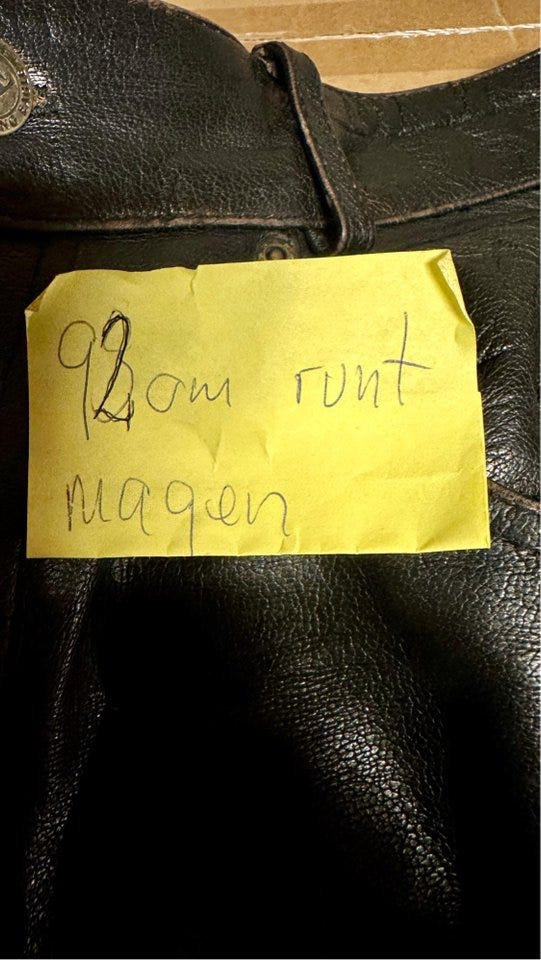 92cm runt
magen